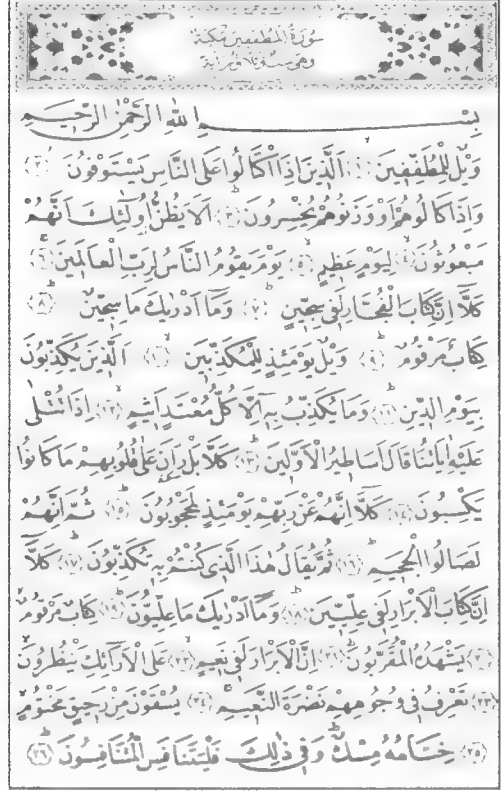 سُورَةُ الْمُطَفِّفِينَ مَكِّيَّةٌ
وَهِيَ سِتٌّ وَثَلَاثُونَ اٰيَةً
بِسْمِ اللّٰهِ الرَّحْمٰنِ الرَّحِيمِ
وَيْلٌ لِلْمُطَفِّفِينَۙ ﴿١﴾ اَلَّذِينَ اِذَا اكْتَالُوا عَلَى النَّاسِ يَسْتَوْفُونَۘ ﴿٢﴾
وَاِذَا كَالُوهُمْ اَوْ وَزَنُوهُمْ يُخْسِرُونَۜ ﴿٣﴾ اَلَا يَظُنُّ اُولٰٓئِكَ اَنَّهُمْ
مَبْعُوثُونَۙ ﴿٤﴾ لِيَوْمٍ عَظِيمٍۙ ﴿٥﴾ يَوْمَ يَقُومُ النَّاسُ لِرَبِّ الْعَالَمِينَۜ ﴿٦﴾
كَلَّٓا اِنَّ كِتَابَ الْفُجَّارِ لَفِي سِجِّينٍۜ ﴿٧﴾ وَمَٓا اَدْرٰيكَ مَا سِجِّينٌۜ ﴿٨﴾
كِتَابٌ مَرْقُومٌۜ ﴿٩﴾ وَيْلٌ يَوْمَئِذٍ لِلْمُكَذِّبِينَۙ ﴿١٠﴾ اَلَّذِينَ يُكَذِّبُونَ
بِيَوْمِ الدِّينِۜ ﴿١١﴾ وَمَا يُكَذِّبُ بِهِٓ اِلَّا كُلُّ مُعْتَدٍ اَثِيمٍۙ ﴿١٢﴾ اِذَا تُتْلٰى
عَلَيْهِ اٰيَاتُنَا قَالَ اَسَاطِيرُ الْاَوَّلِينَۜ ﴿١٣﴾ كَلَّا بَلْ رَانَ عَلٰى قُلُوبِهِمْ مَا كَانُوا
يَكْسِبُونَ ﴿١٤﴾ كَلَّٓا اِنَّهُمْ عَنْ رَبِّهِمْ يَوْمَئِذٍ لَمَحْجُوبُونَۜ ﴿١٥﴾ ثُمَّ اِنَّهُمْ
لَصَالُوا الْجَحِيمِۜ ﴿١٦﴾ ثُمَّ يُقَالُ هٰذَا الَّذِي كُنْتُمْ بِهِ تُكَذِّبُونَۜ ﴿١٧﴾ كَلَّٓا
اِنَّ كِتَابَ الْاَبْرَارِ لَفِي عِلِّيِّينَۜ ﴿١٨﴾ وَمَٓا اَدْرٰيكَ مَا عِلِّيُّونَۜ ﴿١٩﴾ كِتَابٌ مَرْقُومٌۙ
﴿٢٠﴾ يَشْهَدُهُ الْمُقَرَّبُونَۜ ﴿٢١﴾ اِنَّ الْاَبْرَارَ لَفِي نَعِيمٍۙ ﴿٢٢﴾ عَلَى الْاَرَٓائِكِ يَنْظُرُونَۙ
﴿٢٣﴾ تَعْرِفُ فِي وُجُوهِهِمْ نَضْرَةَ النَّعِيمِۚ ﴿٢٤﴾ يُسْقَوْنَ مِنْ رَحِيقٍ مَخْتُومٍۙ
﴿٢٥﴾ خِتَامُهُ مِسْكٌۜ وَفِي ذٰلِكَ فَلْيَتَنَافَسِ الْمُتَنَافِسُونَۜ ﴿٢٦﴾